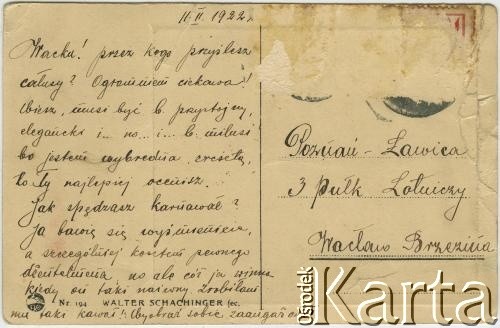 11 II 1922.
Wacku! przez kogo przyślesz
całusy? Ogromniem ciekawa!
Wiesz, musi być b. przystojny,
elegancki i... no... i... b. milusi
bo jestem wybredna, zresztą,
to Ty najlepiej ocenisz.
Jak spędzasz karnawał?
Ja bawię się wyśmienicie,
a szczególniej kosztem pewnego
dżentelmena, no ale cóż ja winna
kiedy on taki naiwny. Zrobiłam
mu taki kawał! Wyobraź sobie
Nr. 194 WALTER SCHACHINGER fec.
Poznań - Ławica
3 pułk Lotniczy
Wacław Brzezina
Ośrodek Karta